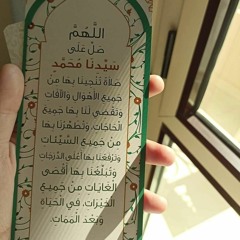 اللَّهُمَّ
صَلِّ عَلَى
سَيِّدِنَا مُحَمَّدٍ
صَلَاةً تُنْجِينَا بِهَا مِنْ
جَمِيعِ الْأَهْوَالِ وَالْآفَاتِ
وَتَقْضِي لَنَا بِهَا جَمِيعَ
الْحَاجَاتِ، وَتُطَهِّرُنَا بِهَا
مِنْ جَمِيعِ السَّيِّئَاتِ
وَتَرْفَعُنَا بِهَا أَعْلَى الدَّرَجَاتِ
وَتُبَلِّغُنَا بِهَا أَقْصَى
الْغَايَاتِ مِنْ جَمِيعِ
الْخَيْرَاتِ، فِي الْحَيَاةِ
وَبَعْدَ الْمَمَاتِ.